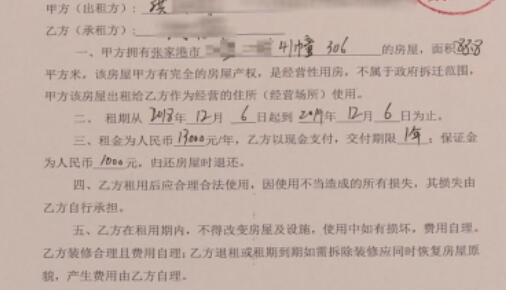 甲方（出租方）：
乙方（承租方）：
一、甲方拥有张家港市 41幢 306 的房屋，面积88.8
平方米，该房屋甲方有完全的房屋产权，是经营性用房，不属于政府拆迁范围，
甲方该房屋出租给乙方作为经营的住所（经营场所）使用。
二、 租期从 2018年 12 月 6 日起到 2019年 12 月 6 日为止。
三、租金为人民币 13000元/年，乙方以现金支付，交付期限 1年；保证金
为人民币 1000 元，归还房屋时退还。
四、乙方租用后应合理合法使用，因使用不当造成的所有损失，其损失由
乙方自行承担。
五、乙方在租用期内，不得改变房屋及设施，使用中如有损坏，费用自理。
乙方装修合理且费用自理；乙方退租或租期到期如需拆除装修应同时恢复房屋原
貌，产生费用由乙方自理。